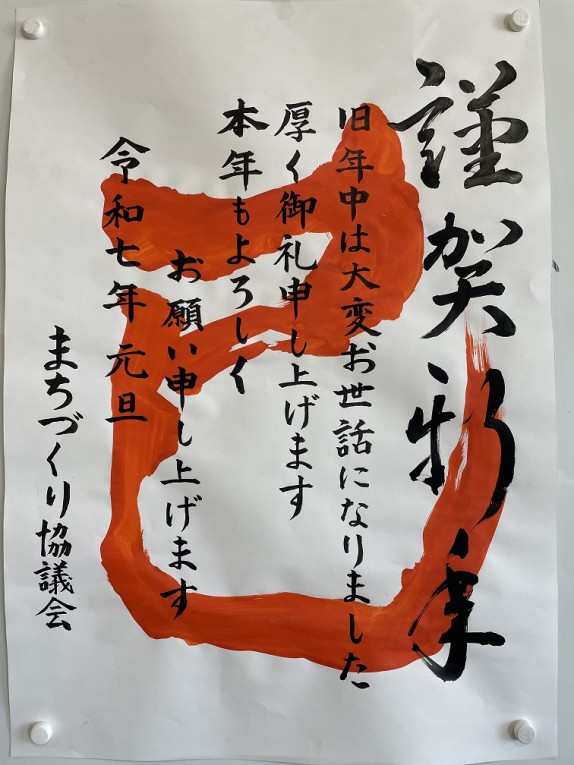 謹賀新年
旧年中は大変お世話になりました
厚く御礼申し上げます
本年もよろしく
お願い申し上げます
令和七年元旦
まちづくり協議会
巳